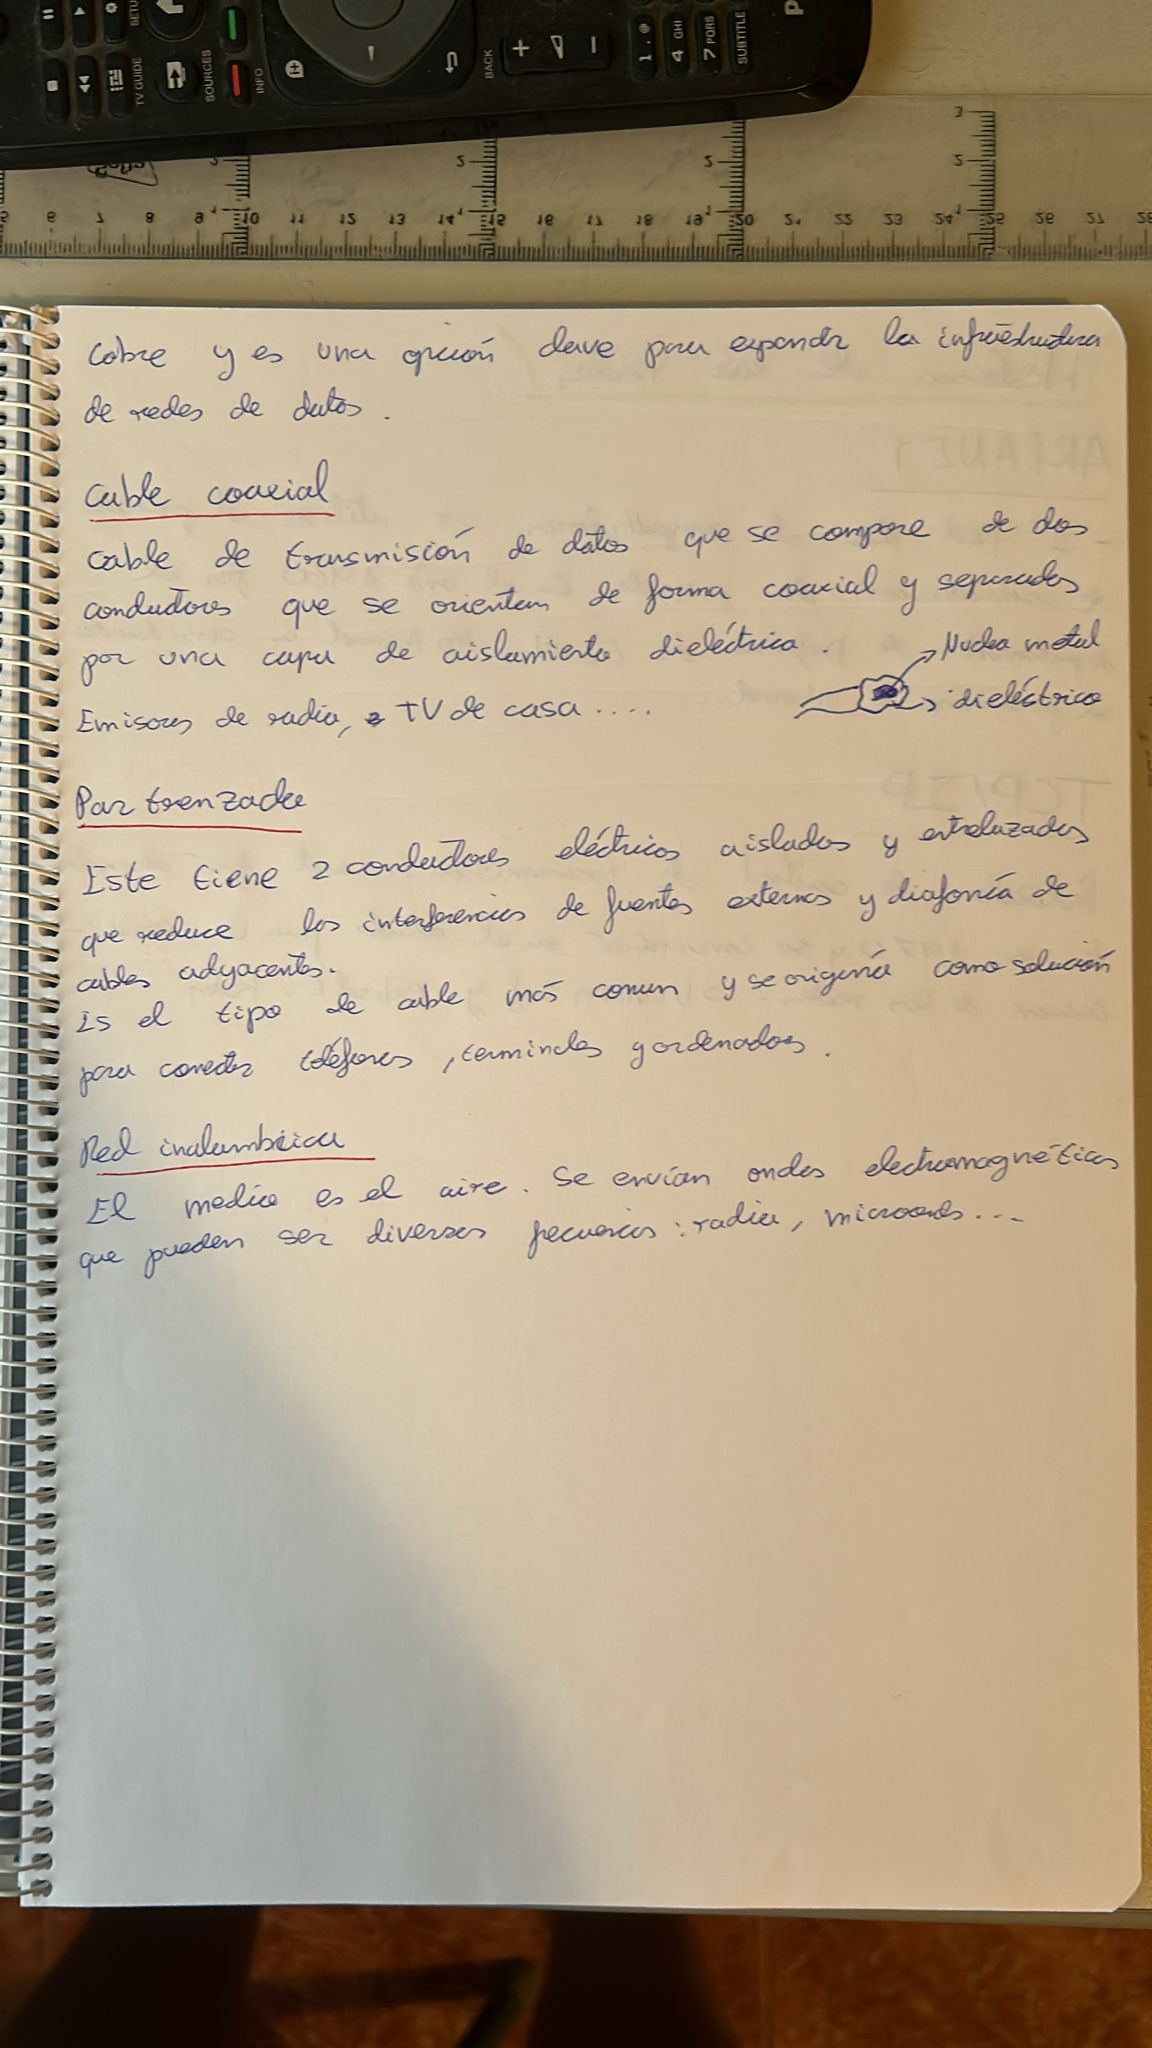 SETU
TV GUIDE
SOURCES
INFO
BACK
+
−
1 . @
4 GHI
7 PQRS
SUBTITLE
P
3
2 2 2 2
5 6 7 8 9 10 11 12 13 14 15 16 17 18 19 20 21 22 23 24 25 26 27 28
cobre y es una opción clave para expandir la infraestructura
de redes de datos.
Cable coaxial
Cable de transmisión de datos que se compone de dos
conductores que se orientan de forma coaxial y separados
por una capa de aislamiento dieléctrico.
Nucleo metal
Emisores de radio, TV de casa ....
dieléctrico
Par trenzado
Este tiene 2 conductores eléctricos aislados y entrelazados
que reduce las interferencias de fuentes externas y diafonía de
cables adyacentes.
Es el tipo de cable más comun y se originó como solución
para conectar teléfonos, terminales y ordenadores.
Red inalambrica
El medio es el aire. Se envían ondas electromagnéticas
que pueden ser diversas frecuencias: radio, microondas...